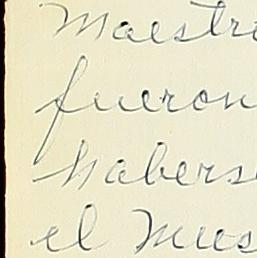 Maestr
fueron
habers
el Mus